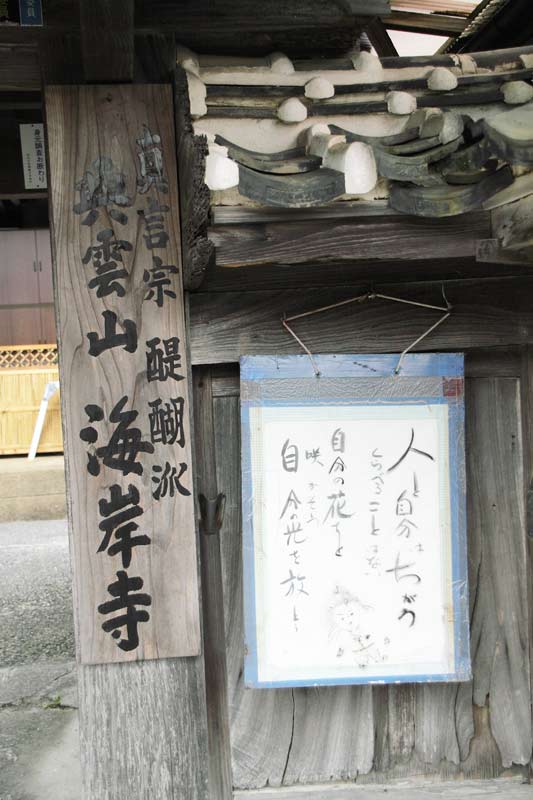 真言宗 醍醐派
興雲山 海岸寺
人と自分はちがう
くらべることはない
自分の花をと
咲かそう
自分の光を放と
身元調査お断わり
委員